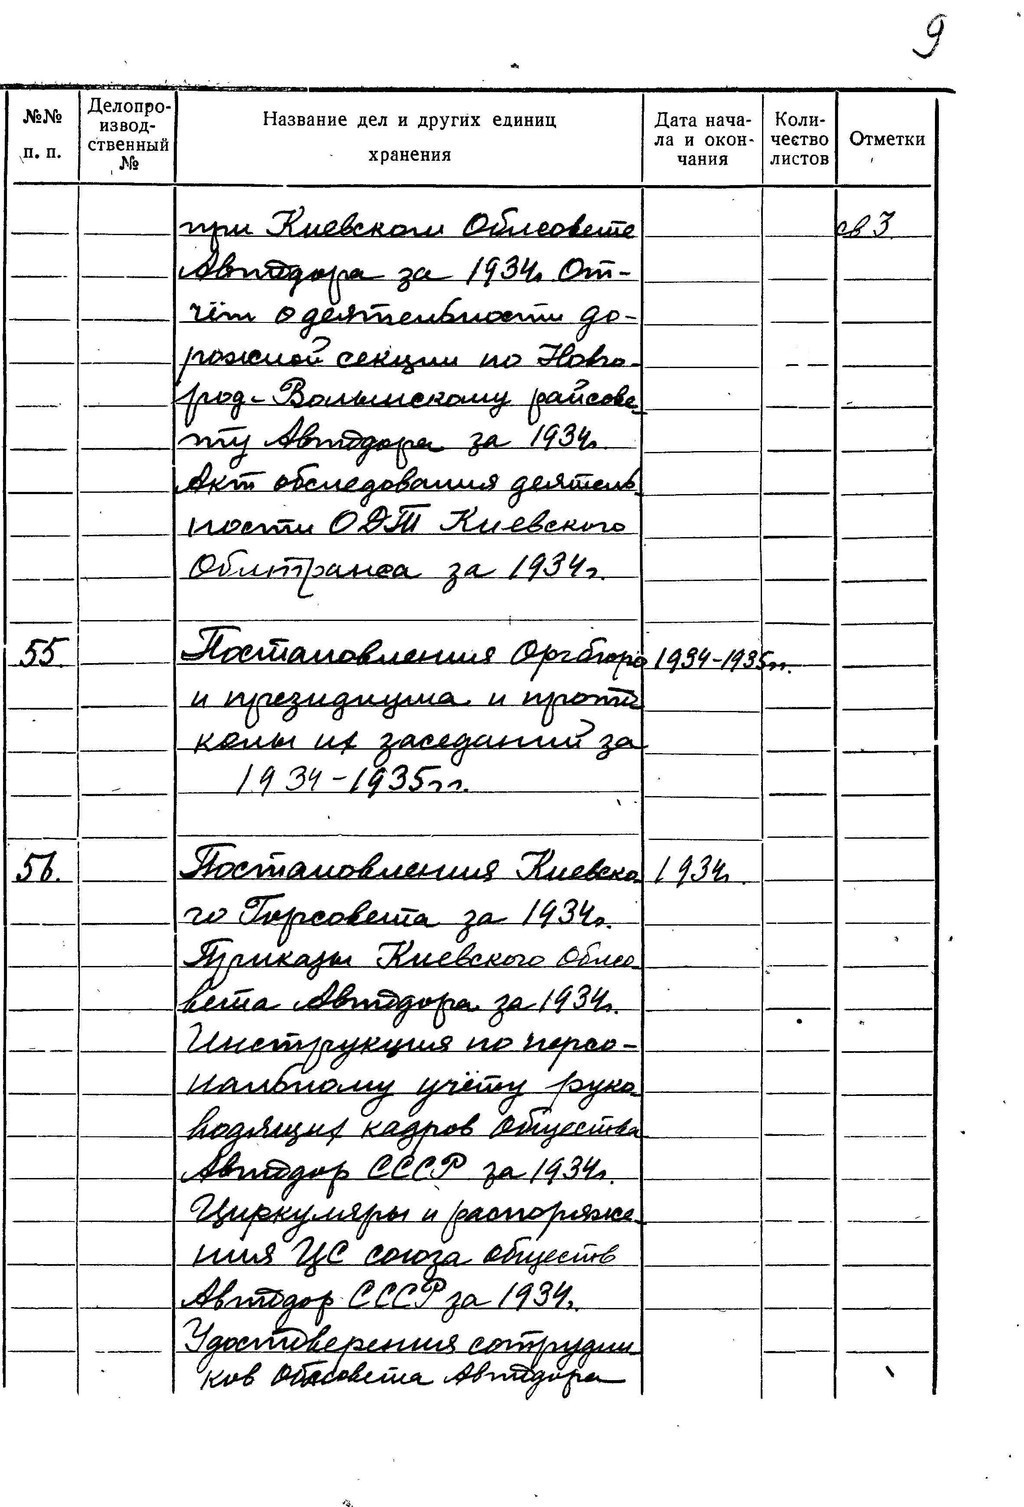 9
№№ п. п.
Делопро-
извод-
ственный
№
Название дел и других единиц
хранения
Дата нача-
ла и окон-
чания
Коли-
чество
листов
Отметки
при Киевском Облсовете св 3
Автодора за 1934г. От-
чёт о деятельности до-
рожной секции по Новго-
род-Волынскому райсове-
ту Автодора за 1934г.
Акт обследования деятель-
ности ОДТ Киевского
Облтранса за 1934г.
55. Постановления Оргбюро 1934-1935гг.
и президиума и прото
колы их заседаний за
1934-1935гг.
56. Постановления Киевско 1934г.
го Горсовета за 1934г.
Приказы Киевского Облсо
вета Автодора за 1934г.
Инструкция по персо-
нальному учёту руко
водящих кадров Общества
Автодор СССР за 1934г.
Циркуляры и распоряже-
ния ЦС союза обществ
Автодор СССР за 1934г.
Удостоверения сотрудни
ков Облсовета Автодора